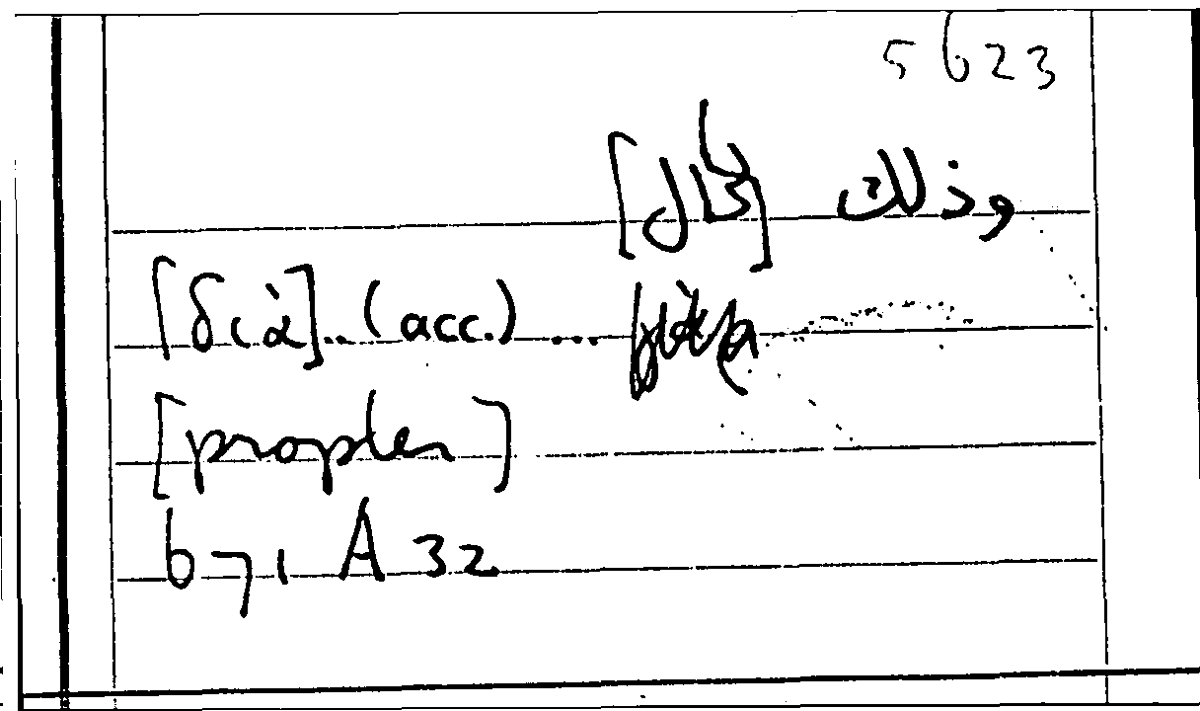 5623
وذلك
[διὰ]..(acc.) ...
[propter]
671 A 32